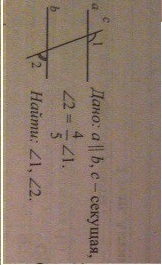 a
c
1
b
2
Дано: a || b, c – секущая,
∠2 = 4/5 ∠1.
Найти: ∠1, ∠2.